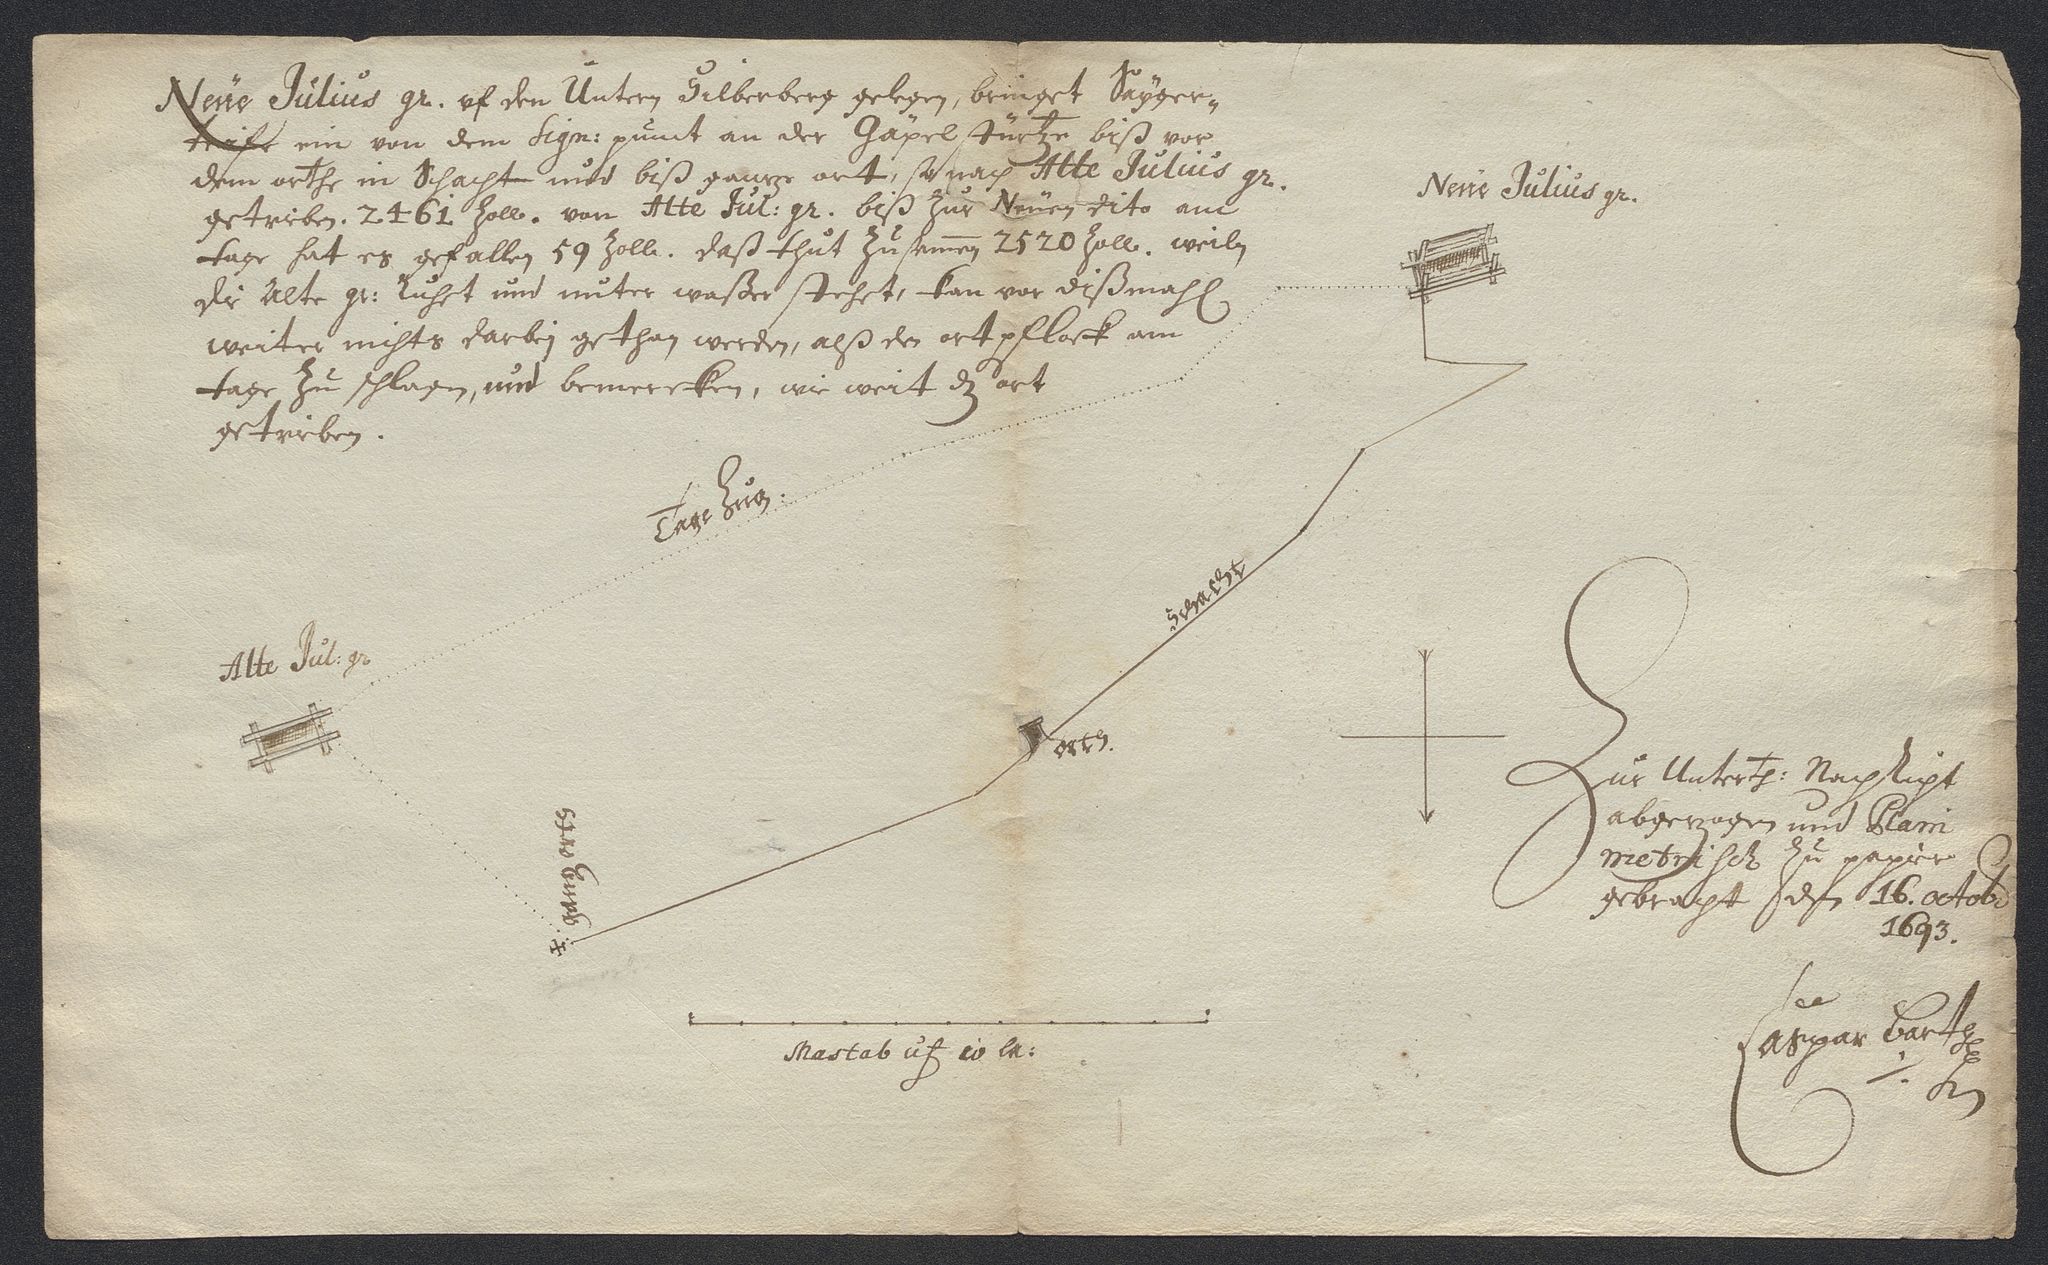 Neüe Julius gr. vf den Untern Silberberg gelegen, bringet Säyger-
teiffe ein von dem Sign: punct an der Gäpel stürtze biß vor
dem orthe in Schacht und biß gantze ort, so nach Alte Julius gr.
getrieben. 2461 Zoll. von Alte Jul: gr. biß Zur Neüen dito am
tage hat es gefallen 59 Zoll. daß thut Zusamen 2520 Zoll. weiln
die Alte gr: Ruhet und unter waßer stehet, kan vor dißmahl
weiter nichts darbey gethan werden, alß den ort pflock am
tage Zu schlagen, und bemercken, wie weit dz ort
getrieben.
Neüe Julius gr.
Tage Zug.
Schacht
Alte Jul: gr
orth.
gantz orts
Zur Unterth: Nachricht
abgezogen und Plani
metrisch Zu papier
gebracht den 16. octob:
1693.
Mastab uf 10 la:
Caspar Barth